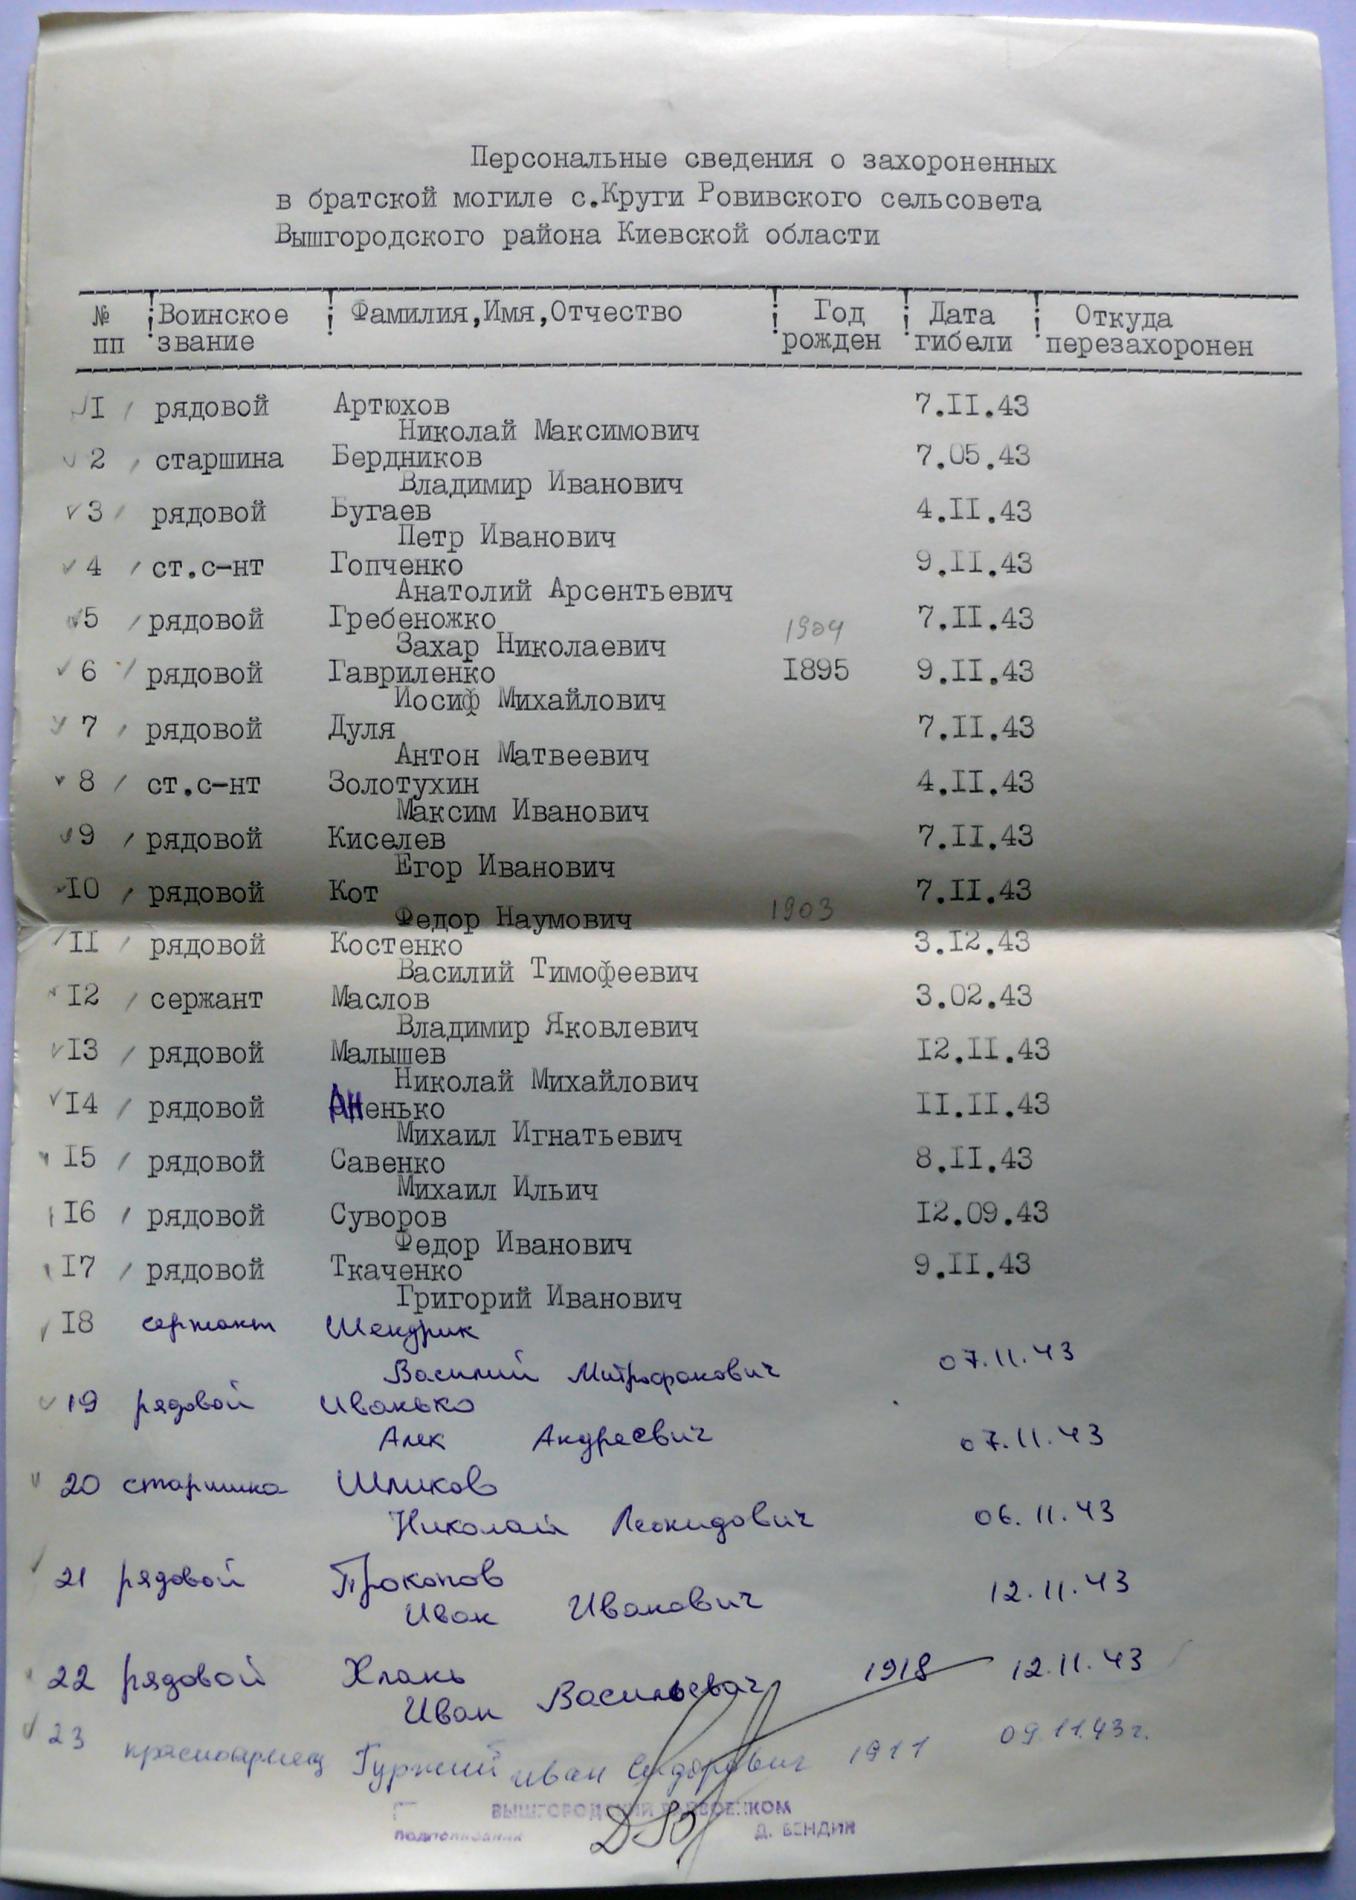 Персональные сведения о захороненных
в братской могиле с.Круги Ровивского сельсовета
Вышгородского района Киевской области
№ ! Воинское ! Фамилия,Имя,Отчество ! Год ! Дата ! Откуда
пп ! звание ! ! рожден ! гибели ! перезахоронен
I рядовой Артюхов 7.II.43
Николай Максимович
2 старшина Бердников 7.05.43
Владимир Иванович
3 рядовой Бугаев 4.II.43
Петр Иванович
4 ст.с-нт Гопченко 9.II.43
Анатолий Арсентьевич
5 рядовой Гребеножко 7.II.43
Захар Николаевич 1904
6 рядовой Гавриленко I895 9.II.43
Иосиф Михайлович
7 рядовой Дуля 7.II.43
Антон Матвеевич
8 ст.с-нт Золотухин 4.II.43
Максим Иванович
9 рядовой Киселев 7.II.43
Егор Иванович
IO рядовой Кот 7.II.43
Федор Наумович 1903
II рядовой Костенко 3.I2.43
Василий Тимофеевич
I2 сержант Маслов 3.02.43
Владимир Яковлевич
I3 рядовой Малышев I2.II.43
Николай Михайлович
I4 рядовой Аненько II.II.43
Михаил Игнатьевич
I5 рядовой Савенко 8.II.43
Михаил Ильич
I6 рядовой Суворов I2.09.43
Федор Иванович
I7 рядовой Ткаченко 9.II.43
Григорий Иванович
I8 сержант Шендрик
Василий Митрофанович 07.11.43
19 рядовой Иванько
Алек Андреевич 07.11.43
20 старшина Шликов
Николай Леонидович 06.11.43
21 рядовой Прокопов
Иван Иванович 12.11.43
22 рядовой Хлань 1918 12.11.43
Иван Васильевич
23 красноармеец Гуржий Иван Сидорович 1911 09.11.43г.
ВЫШГОРОДСКИЙ РАЙВОЕНКОМ
подполковник Д. БЕНДИК